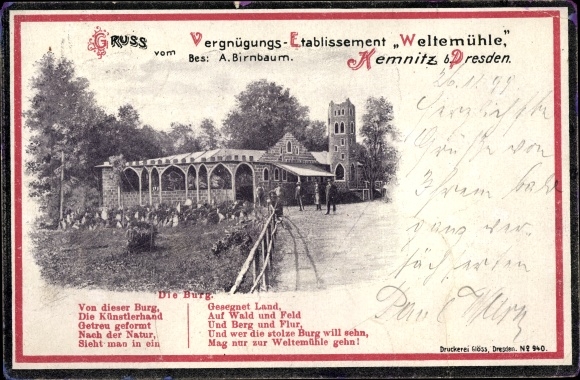 GRUSS vom Vergnügungs-Etablissement „Weltemühle,"
Bes: A. Birnbaum. Kemnitz b. Dresden.
Herzlichste
Grüße von
Ihrem
Die Burg.
Von dieser Burg,
Die Künstlerhand
Getreu geformt
Nach der Natur,
Sieht man in ein
Gesegnet Land,
Auf Wald und Feld
Und Berg und Flur,
Und wer die stolze Burg will sehn,
Mag nur zur Weltemühle gehn!
Druckerei Glöss, Dresden. Nº 940.